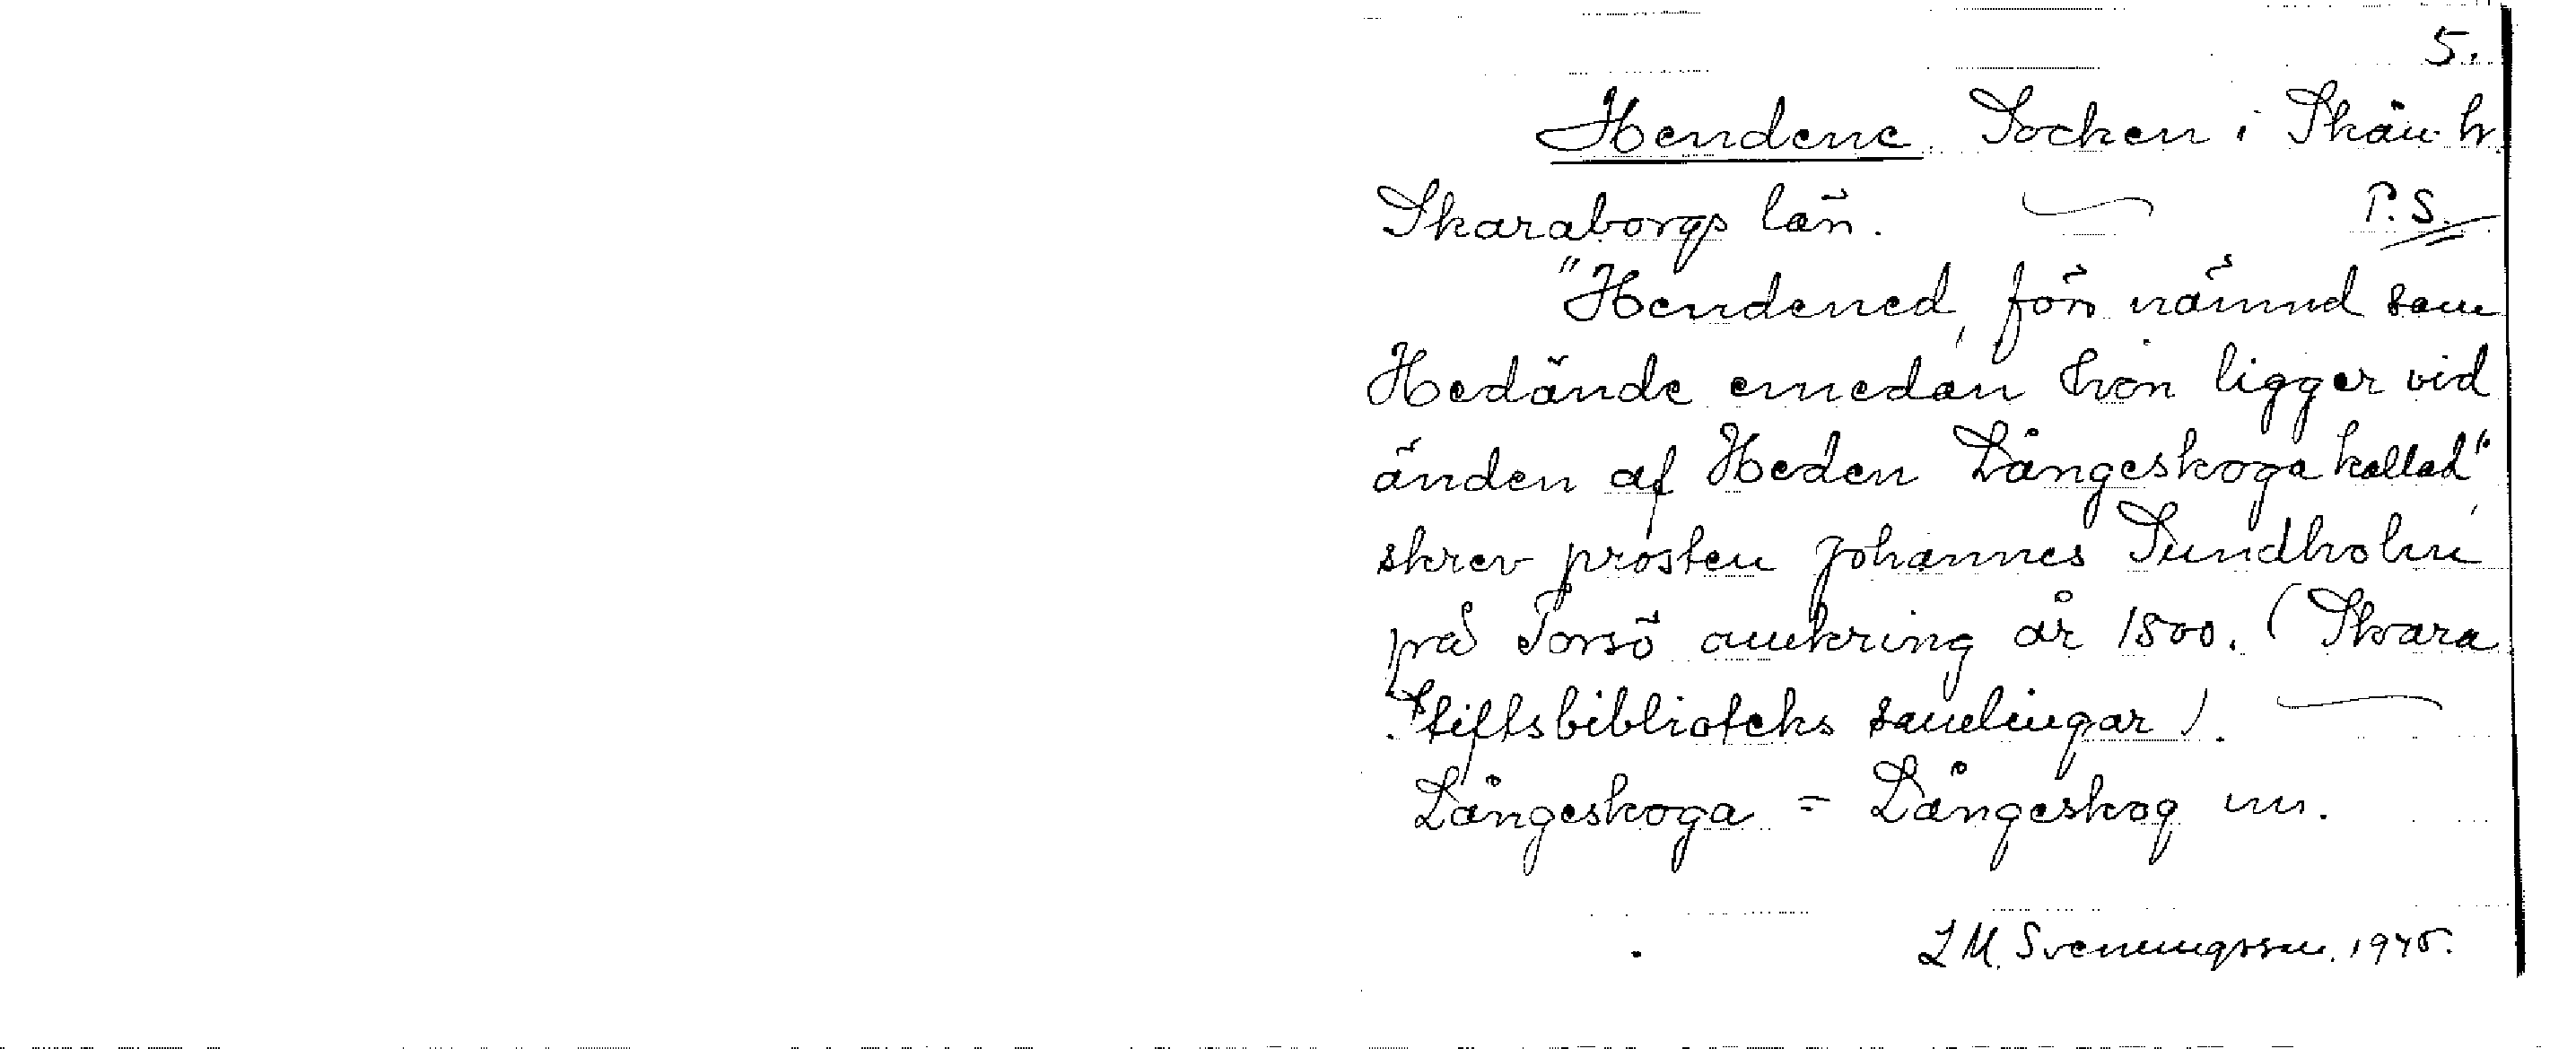 5.
Hendene. Socken i Skån. hr.
Skaraborgs län. P.S.
"Hendened, förr nämnd som
Hedände emedan hon ligger vid
änden af Heden Långeskoga kallad",
skrev prosten Johannes Sundholm
på Torsö omkring år 1800. (Skara
Stiftsbiblioteks samlingar).
Långeskoga = Långeskog nu.
L M. Svenungsson. 1945.